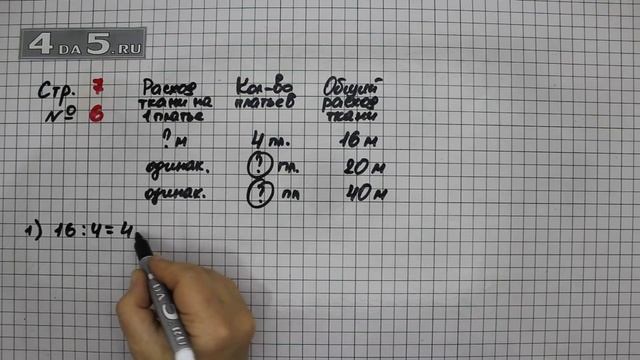 4 DA 5.RU
Стр. 7 Расход Кол-во Общий
№ 6 ткани на платьев расход
1 платье ткани
? м 4 пл. 16 м
одинак. ? пл. 20 м
одинак. ? пл 40 м
1) 16 : 4 = 4
4 DA 5.RU